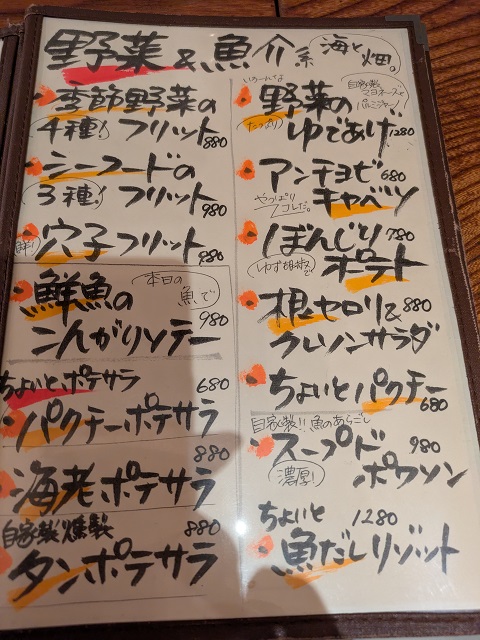 野菜&魚介系 海と畑。
季節野菜の
4種!フリット 880
シーフードの
3種!フリット 980
穴子フリット 880
鮮魚の 本日の魚で
こんがりソテー 980
ちょいとポテサラ 680
パクチーポテサラ
880
海老ポテサラ
自家製燻製 880
タンポテサラ
いろーんな
野菜の 自家製マヨネーズとパルミジャーノ
たっぷり ゆであげ 1280
アンチョビ 680
やっぱりコレだ。 キャベツ
ぼんじり 780
ゆず胡椒で ポテト
根セロリ& 880
クレソンサラダ
ちょいとパクチー
680
自家製!!魚のあらごし
スープド 980
濃厚! ポワソン
ちょいと 1280
魚だしリゾット